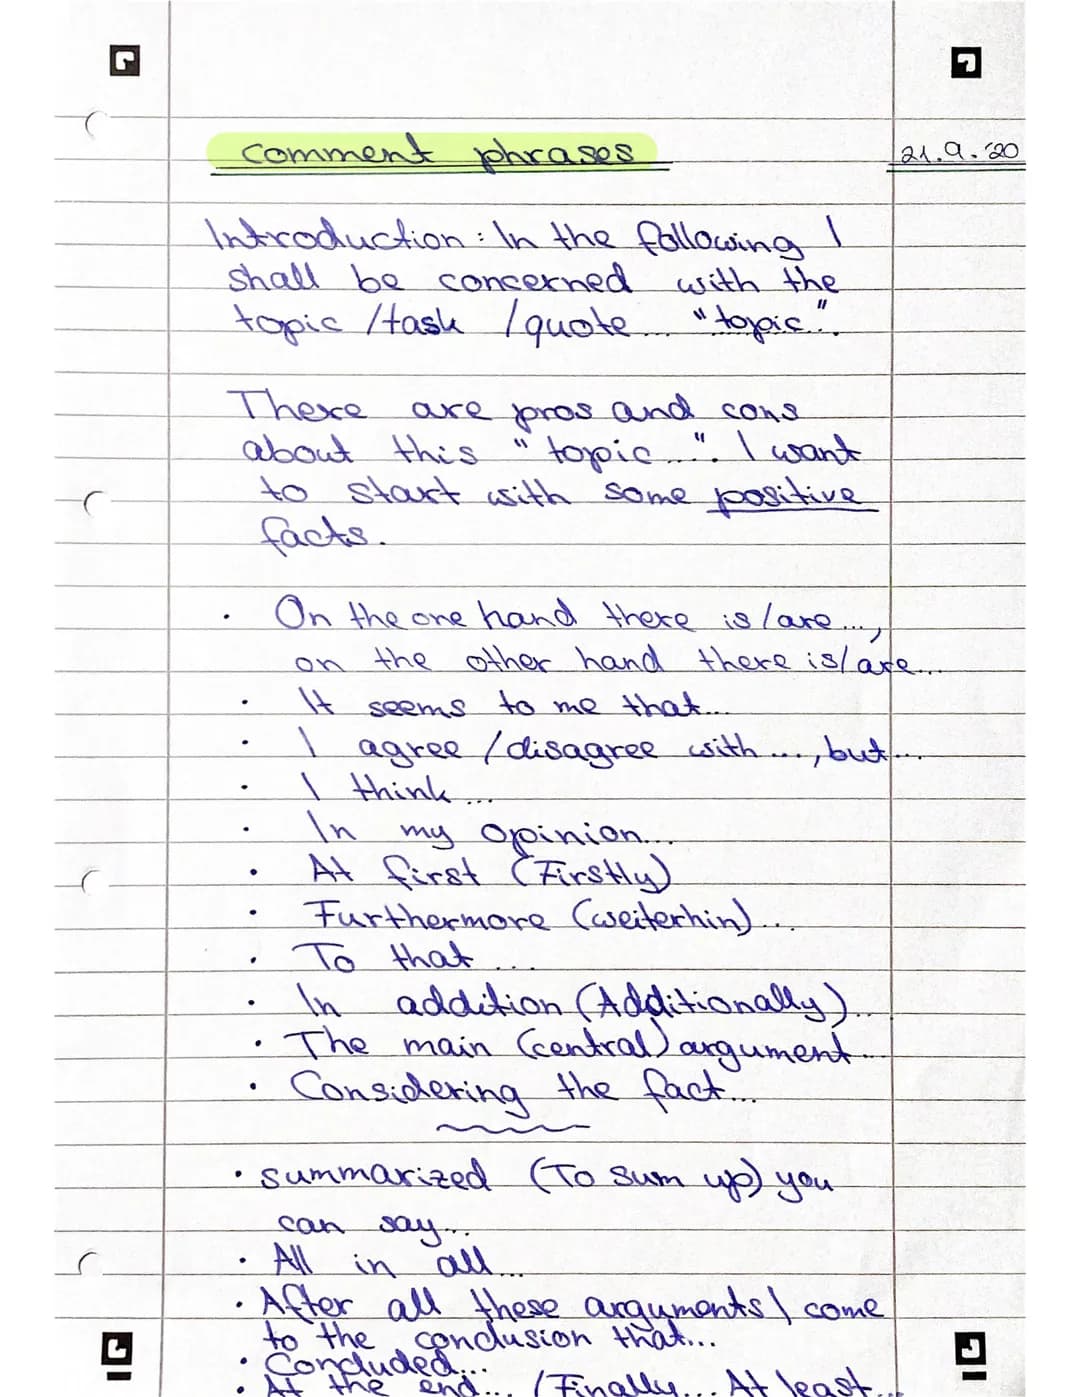 comment phrases
21.9.'20
Introduction: In the following I
shall be concerned with the
topic /task /quote... "topic...".
There are pros and cons
about this "topic...". I want
to start with some positive
facts.
· On the one hand there is/are...,
on the other hand there is/are...
· It seems to me that...
· I agree /disagree with ..., but...
· I think...
· In my opinion...
· At first (Firstly)
· Furthermore (weiterhin)...
· To that ...
· In addition (Additionally)...
· The main (central) argument...
· Considering the fact...
· summarized (To sum up) you
can say...
· All in all...
· After all these arguments I come
to the conclusion that...
· Concluded...
· At the end... (Finally... At least...